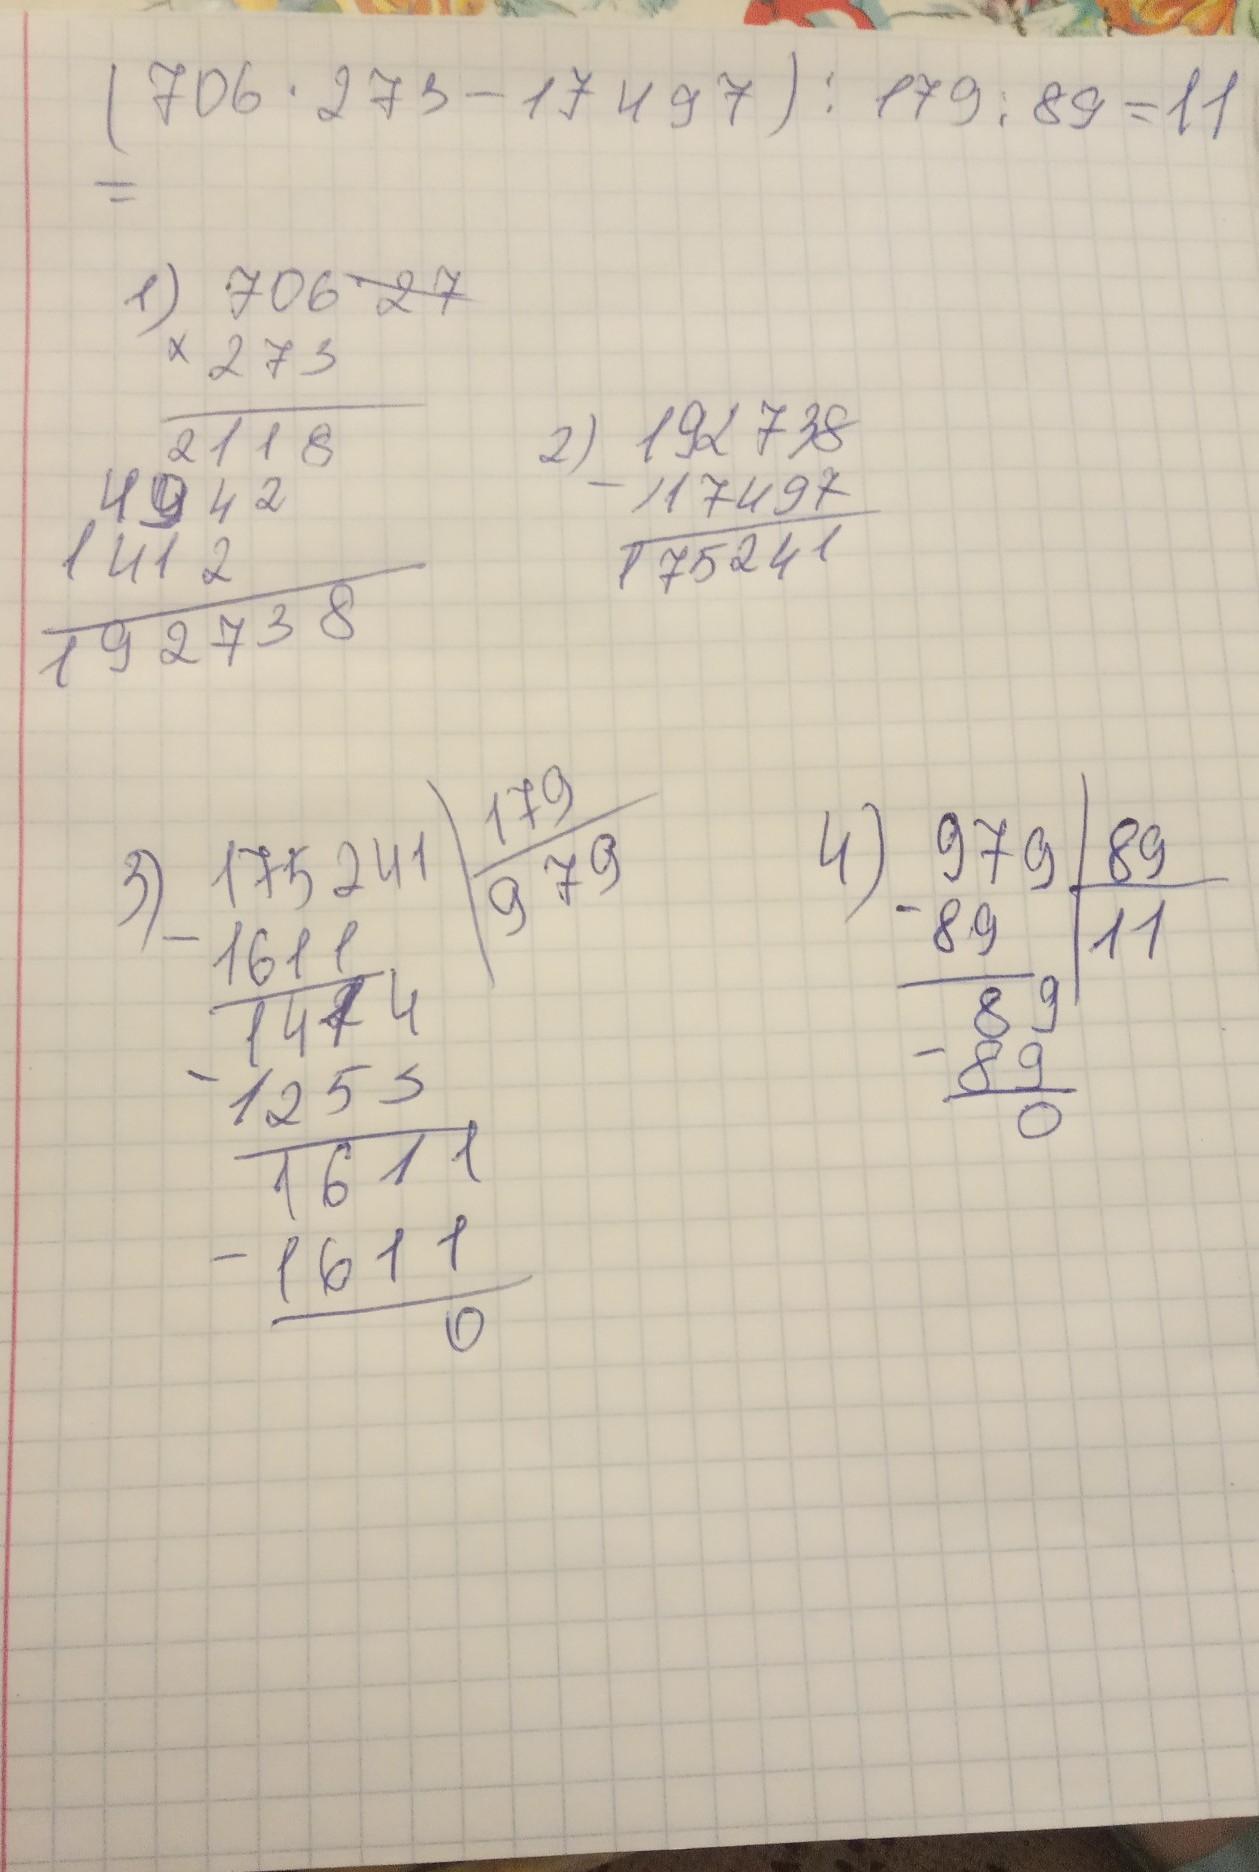 (706 · 273 - 17497) : 179 : 89 = 11
=
1) 706 · 27
× 273
2118
4942
1412
192738
2) 192738
- 17497
175241
3) 175241 | 179
- 1611 | 979
1414
- 1253
1611
- 1611
0
4) 979 | 89
- 89 | 11
89
- 89
0